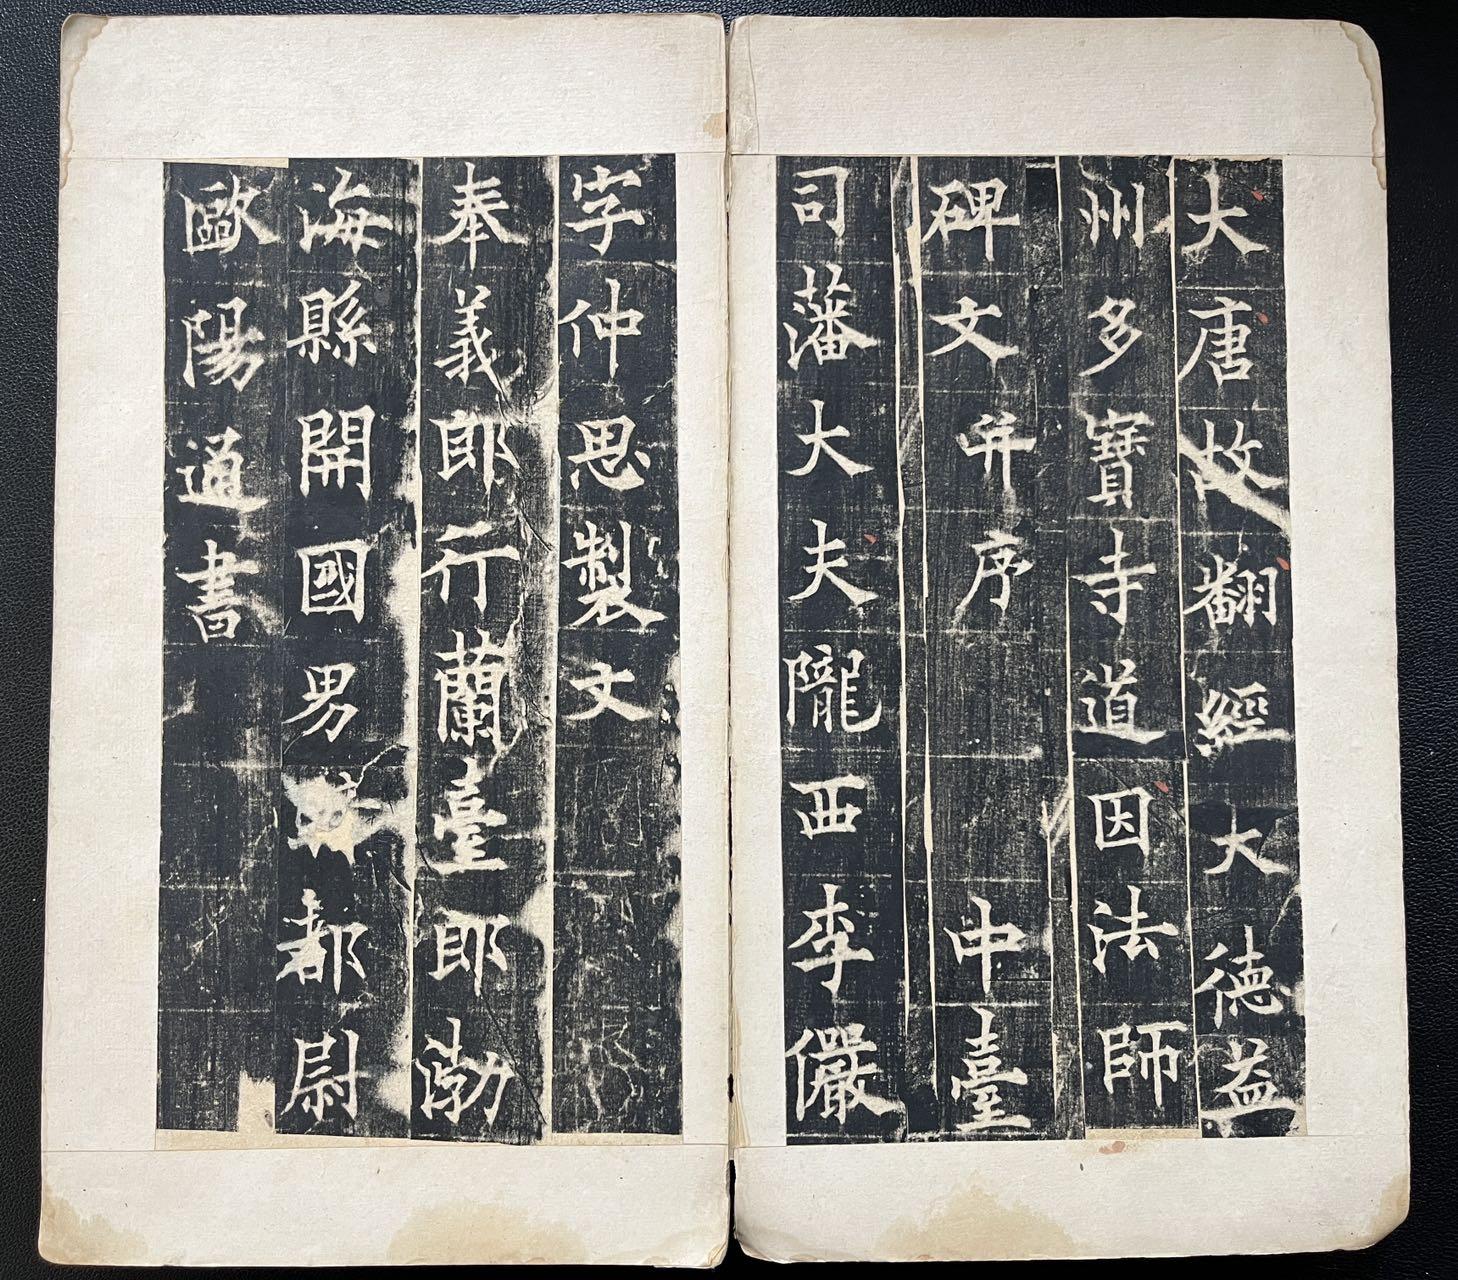 大唐故翻經大德益
州多寶寺道因法師
碑文并序 中臺
司藩大夫隴西李儼
字仲思製文
奉義郎行蘭臺郎渤
海縣開國男 都尉
歐陽通書